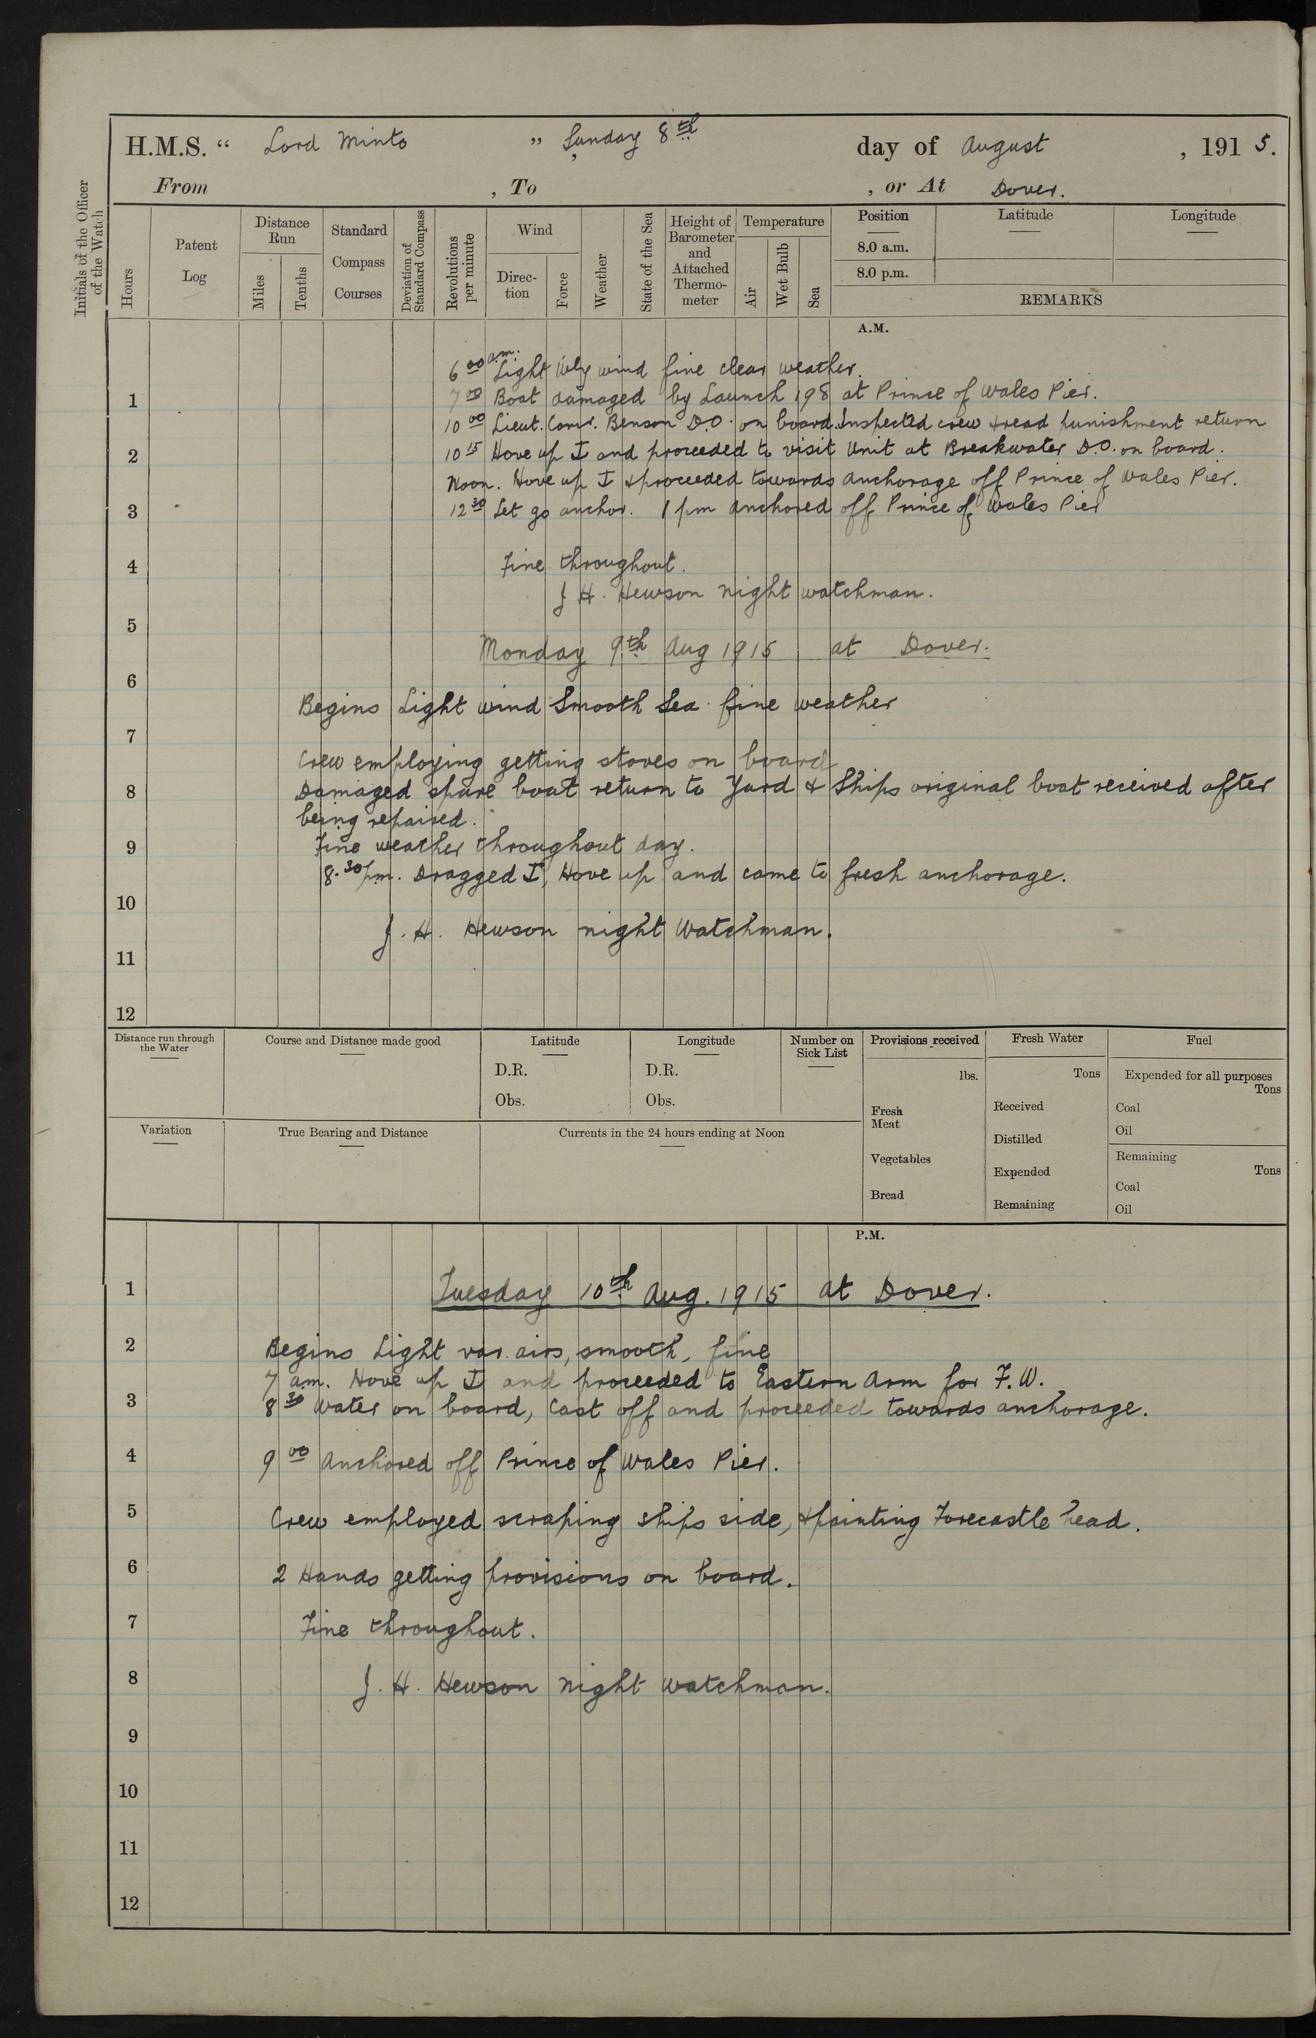 H.M.S. “ Lord Minto ” Sunday 8th day of August , 1915.
From , To , or At Dover.
Initials of the Officer of the Watch
Hours
Patent Log
Distance Run
Miles
Tenths
Standard Compass Courses
Deviation of Standard Compass
Revolutions per minute
Wind
Direc-tion
Force
Weather
State of the Sea
Height of Barometer and Attached Thermo-meter
Temperature
Air
Wet Bulb
Sea
Position
Latitude
Longitude
8.0 a.m.
8.0 p.m.
REMARKS
A.M.
6 00 a.m. Light Wly wind fine clear weather.
1 7 00 Boat damaged by Launch 198 at Prince of Wales Pier.
10 00 Lieut. Comr. Benson D.O. on board. Inspected crew & read punishment return
2 10 15 Hove up ⚓ and proceeded to visit Unit at Breakwater D.O. on board.
Noon. Hove up ⚓ & proceeded towards anchorage off Prince of Wales Pier.
3 12 30 Let go anchor. 1 pm anchored off Prince of Wales Pier
4 Fine throughout.
J H. Hewson night watchman.
5
Monday 9th Aug 1915 at Dover.
6
Begins Light wind Smooth Sea fine weather
7
Crew employing getting stores on board
8 Damaged spare boat return to Yard & Ships original boat received after
being repaired.
9 Fine weather throughout day.
8.30 pm. Dragged ⚓, Hove up and came to fresh anchorage.
10
J. H. Hewson night Watchman.
11
12
Distance run through the Water
Course and Distance made good
Latitude
D.R.
Obs.
Longitude
D.R.
Obs.
Number on Sick List
Provisions received
lbs.
Fresh Meat
Vegetables
Bread
Fresh Water
Tons
Received
Distilled
Expended
Remaining
Fuel
Expended for all purposes
Tons
Coal
Oil
Remaining
Tons
Coal
Oil
Variation
True Bearing and Distance
Currents in the 24 hours ending at Noon
P.M.
1 Tuesday 10th Aug. 1915 at Dover.
2 Begins Light var. airs, smooth, fine
7 am. Hove up ⚓ and proceeded to Eastern Arm for F.W.
3 8 30 Water on board, Cast off and proceeded towards anchorage.
4 9 00 Anchored off Prince of Wales Pier.
5 Crew employed scraping ships side, & painting Forecastle head.
6 2 Hands getting provisions on board.
7 Fine throughout.
8 J. H. Hewson night watchman.
9
10
11
12